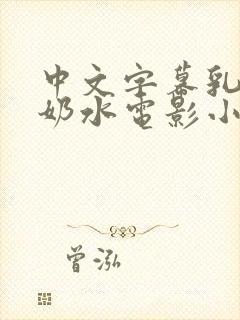 中文字幕乳
奶水电影小
曾泓